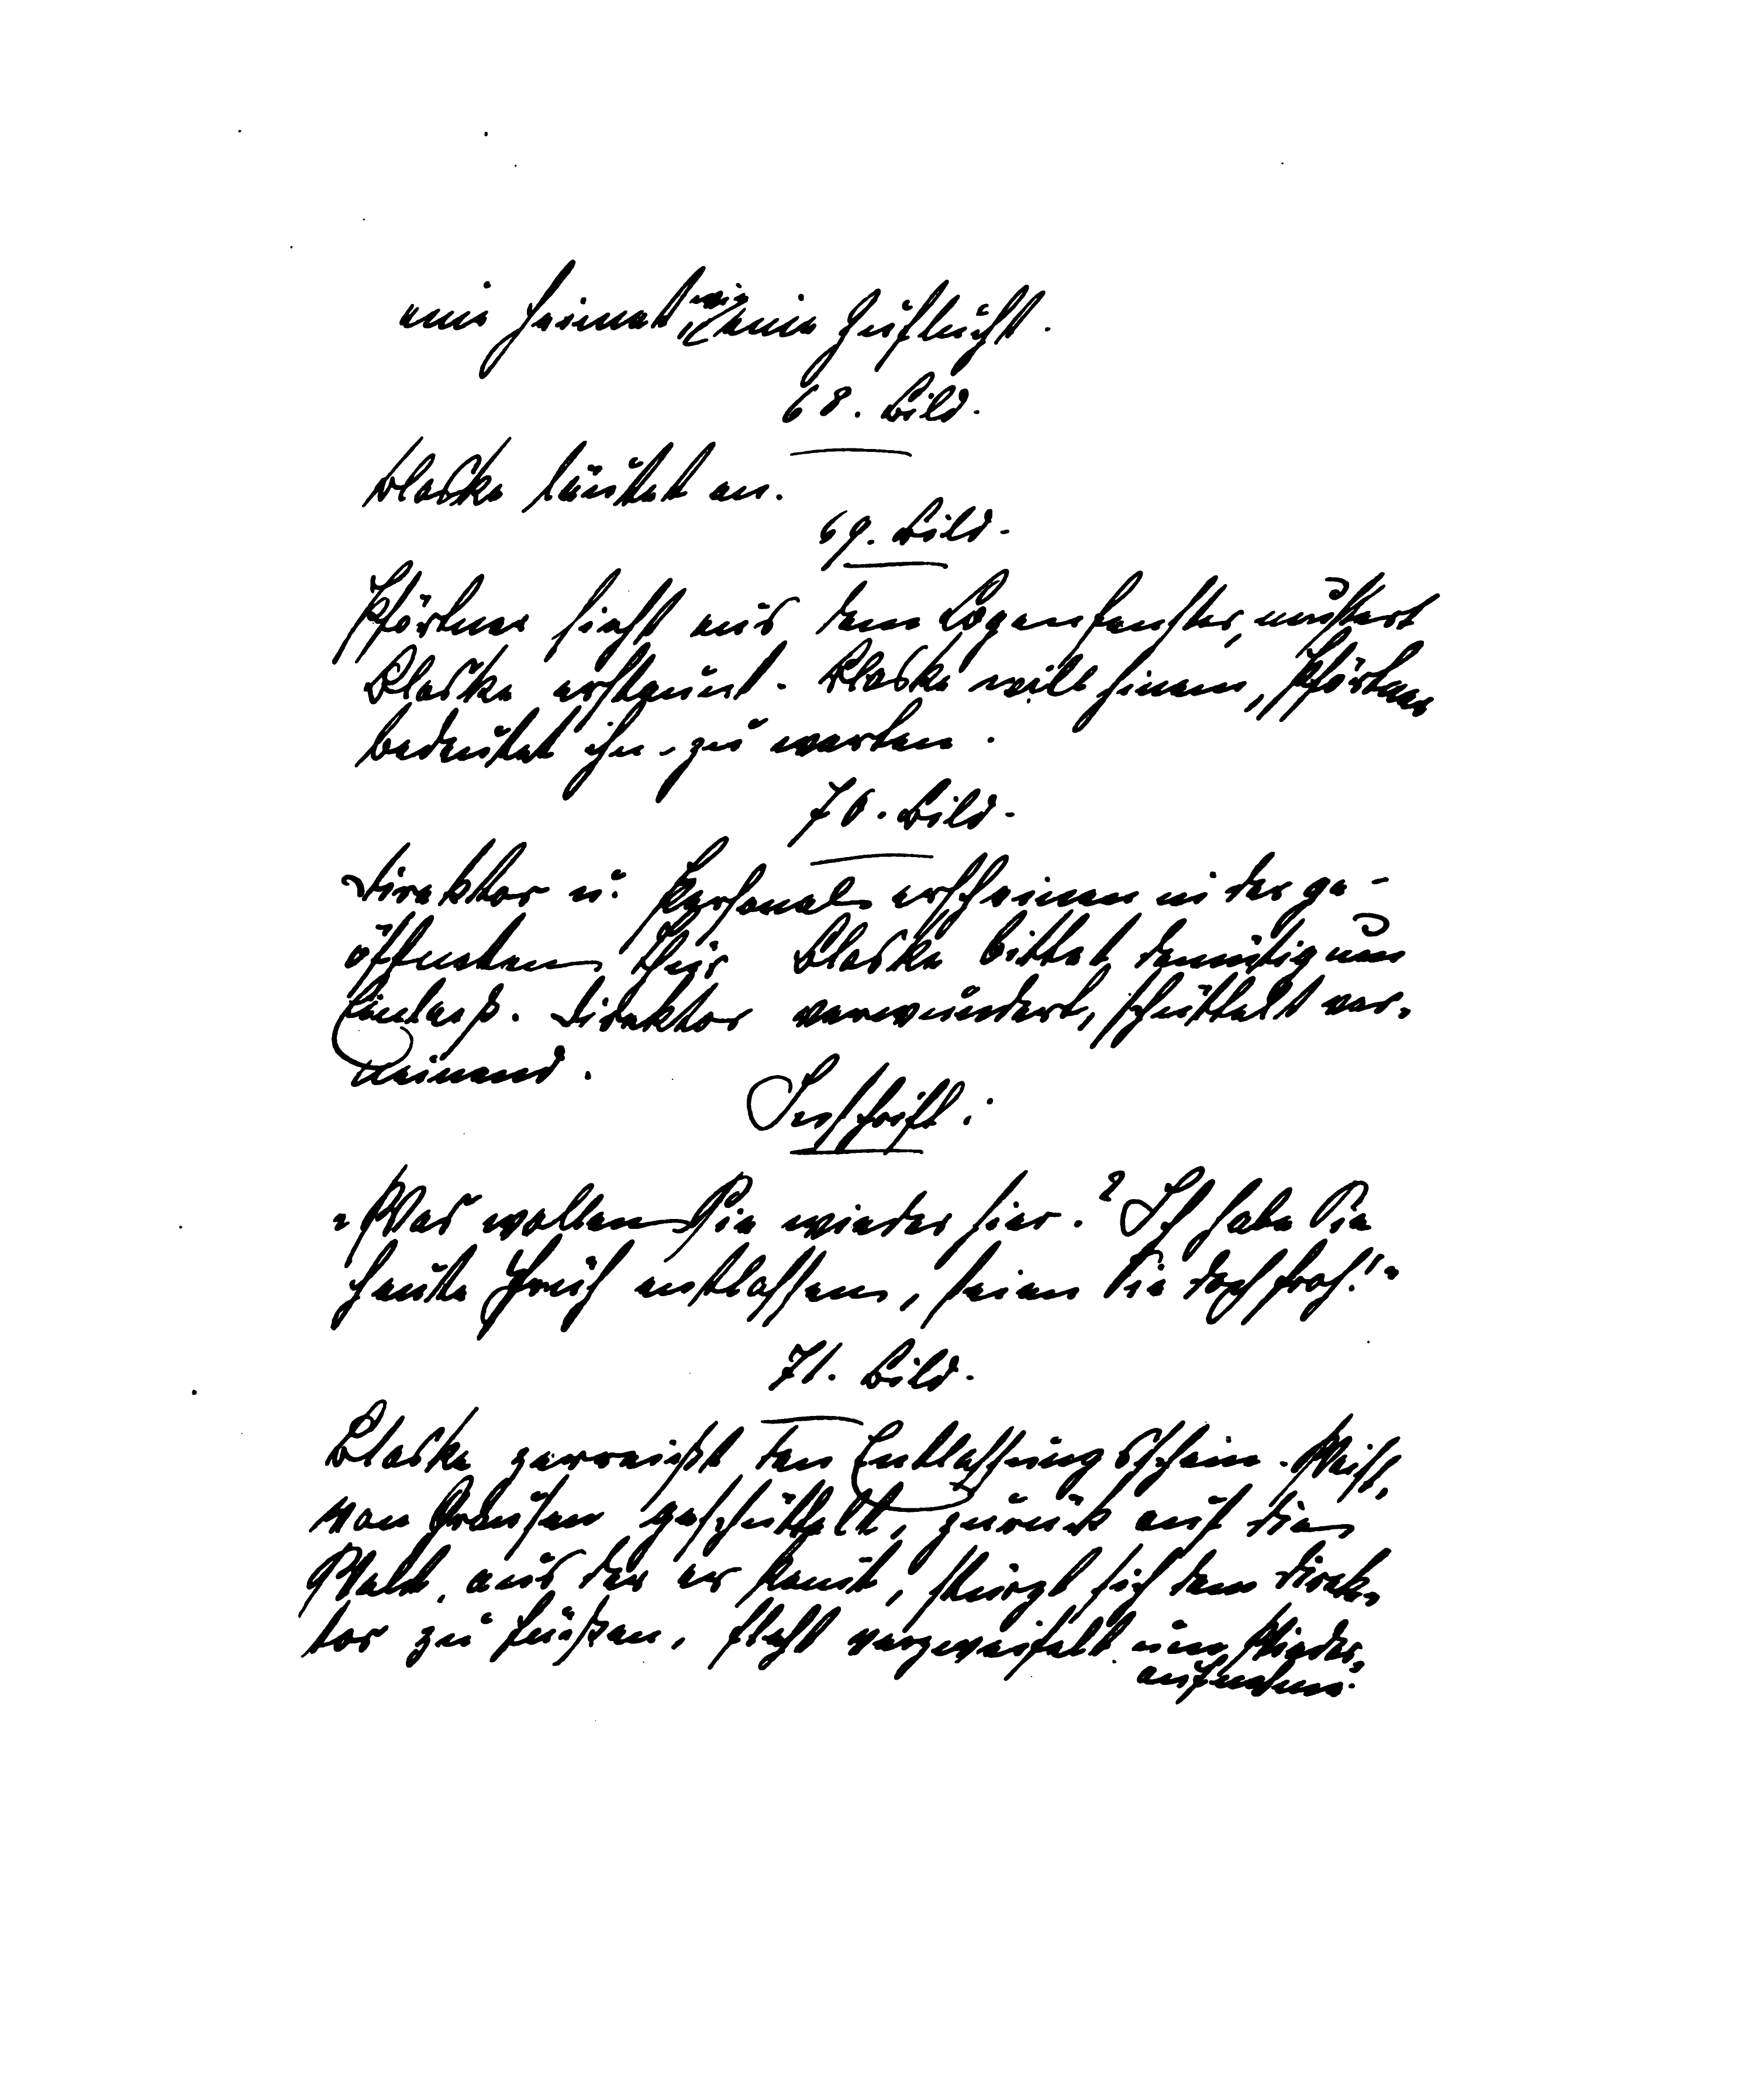 eine Heimat, wie eine Zuflucht.
68. Bild.
Blaske läutet an.
69. Bild.
Pförtner sieht aus dem Logenfenster, mustert
Blaske erstaunt. Blaske will hinein, Pförtner
bedeutet ihn, zu warten.
70. Bild.
Direktor u. Personal erscheinen in der ge-
öffneten Thür Blaske bittet demütig um
Einlass. Direktor verwundert, schüttelt ver-
neinend.
Inschrift:
"Was wollen Sie wieder hier? Ich habe Sie
heute Früh entlassen, seien Sie doch froh!"
71. Bild.
Blaske zerreißt den Entlassungsschein. Weist,
von Grausen geschüttelt, zurück auf die
Welt, aus der er kommt, stürzt sich dem Direk-
tor zu Füßen, fleht verzweifelt um Wieder-
aufnahme.